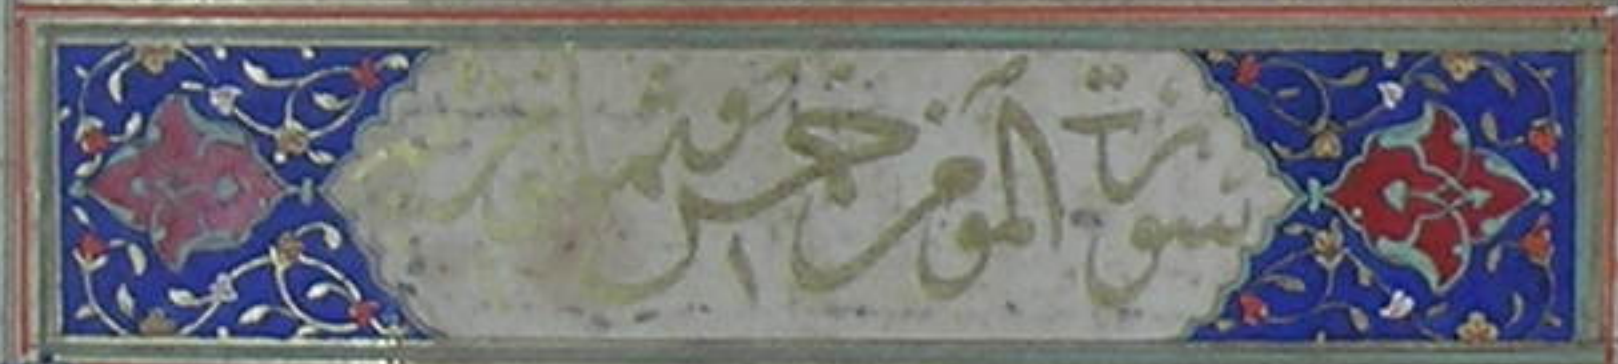 سورة المؤمن خمس وثمانون